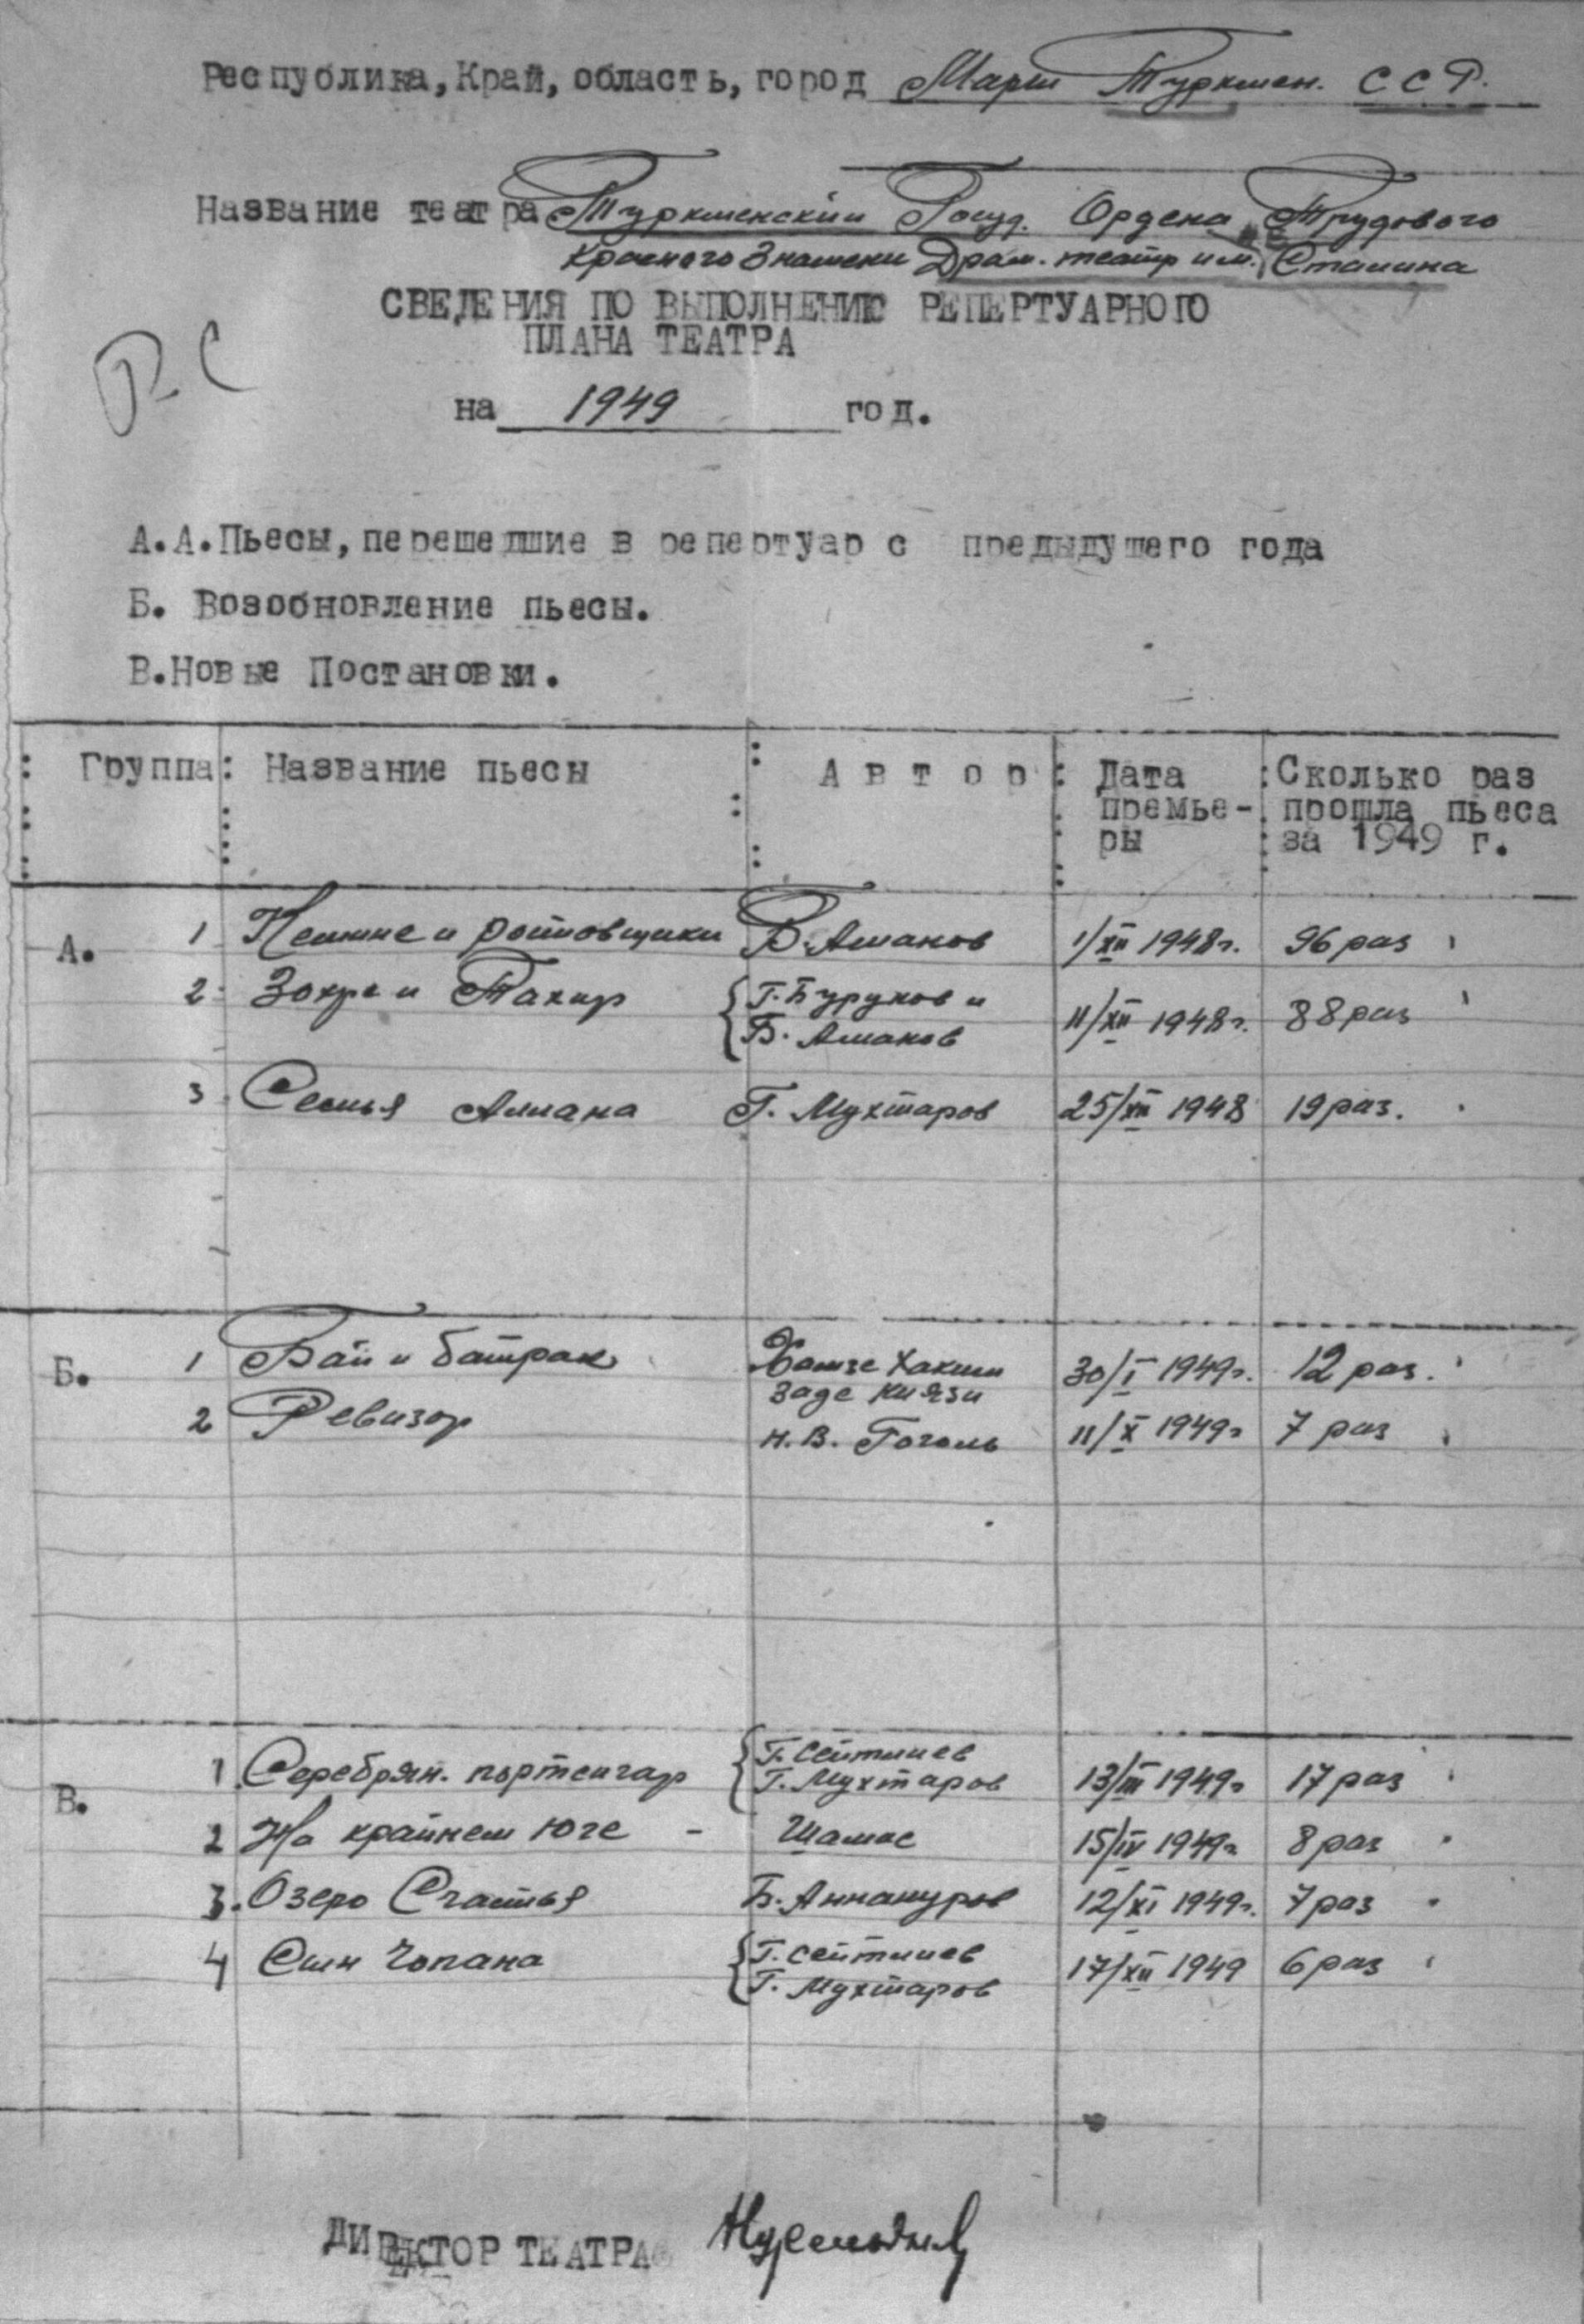 Республика, Край, область, город Мары Туркмен. ССР.
Название театра Туркменский Госуд. Ордена Трудового
Красного Знамени Драм. театр им. Сталина
СВЕДЕНИЯ ПО ВЫПОЛНЕНИЮ РЕПЕРТУАРНОГО
ПЛАНА ТЕАТРА
на 1949 год.
А.А.Пьесы, перешедшие в репертуар с предыдущего года
Б. Возобновление пьесы.
В.Новые Постановки.
Группа Название пьесы Автор Дата премье-ры Сколько раз прошла пьеса за 1949 г.
А. 1 Кемине и ростовщики Б. Аманов 1/XII 1948г. 96 раз
2 Зохре и Тахир Г. Бурунов и Б. Аманов 11/XII 1948г. 88 раз
3 Семья Аллана Г. Мухтаров 25/XII 1948 19 раз.
Б. 1 Бай и батрак Хамзе Хаким заде Ниязи 30/I 1949г. 12 раз.
2 Ревизор Н.В. Гоголь 11/X 1949г 7 раз
В. 1 Серебрян. портсигар Г. Сейтлиев Г. Мухтаров 13/III 1949г 17 раз
2 На крайнем Юге - Шамас 15/IV 1949г. 8 раз
3. Озеро Счастья Б. Аннануров 12/XI 1949г. 7 раз
4 Сын Чопана Г. Сейтлиев Г. Мухтаров 17/XII 1949 6 раз
ДИРЕКТОР ТЕАТРА